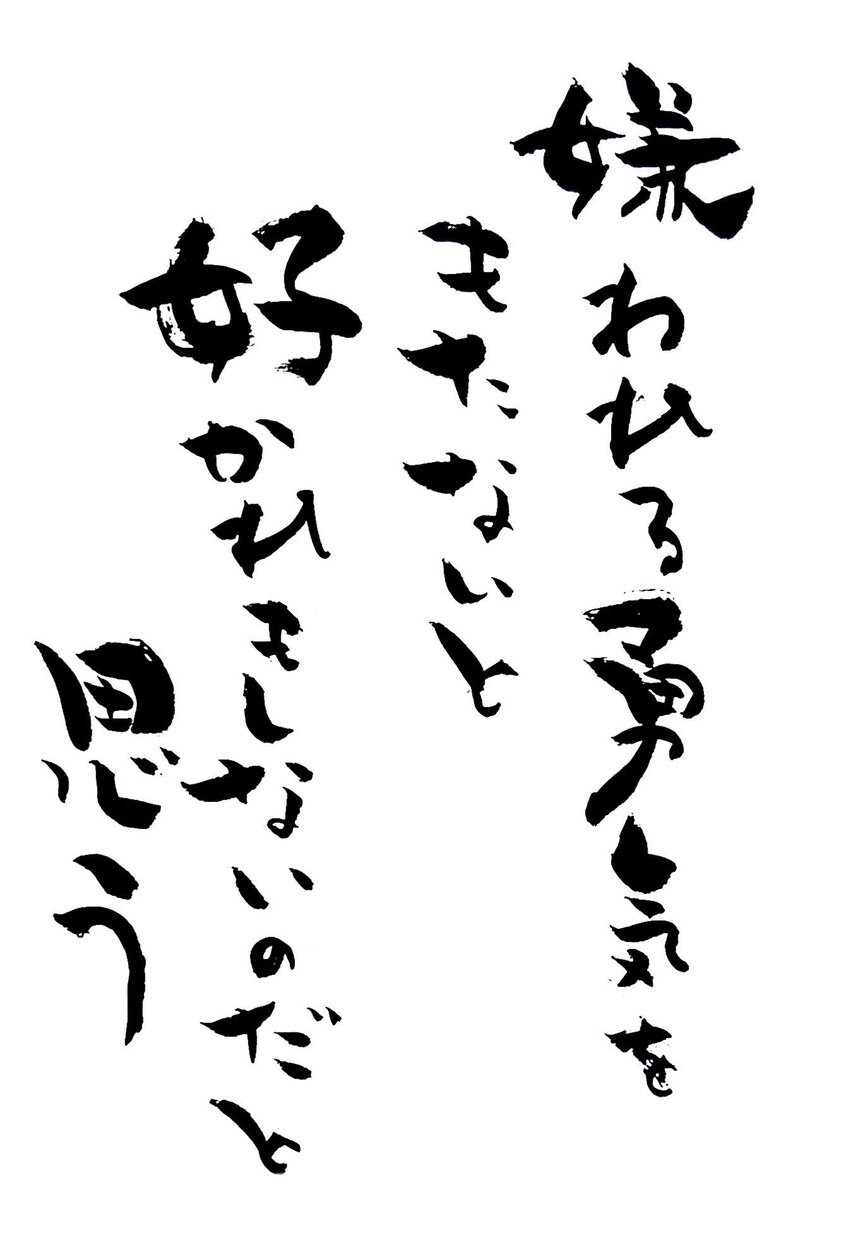 嫌われる勇気を
もたないと
好かれもしないのだと
思う